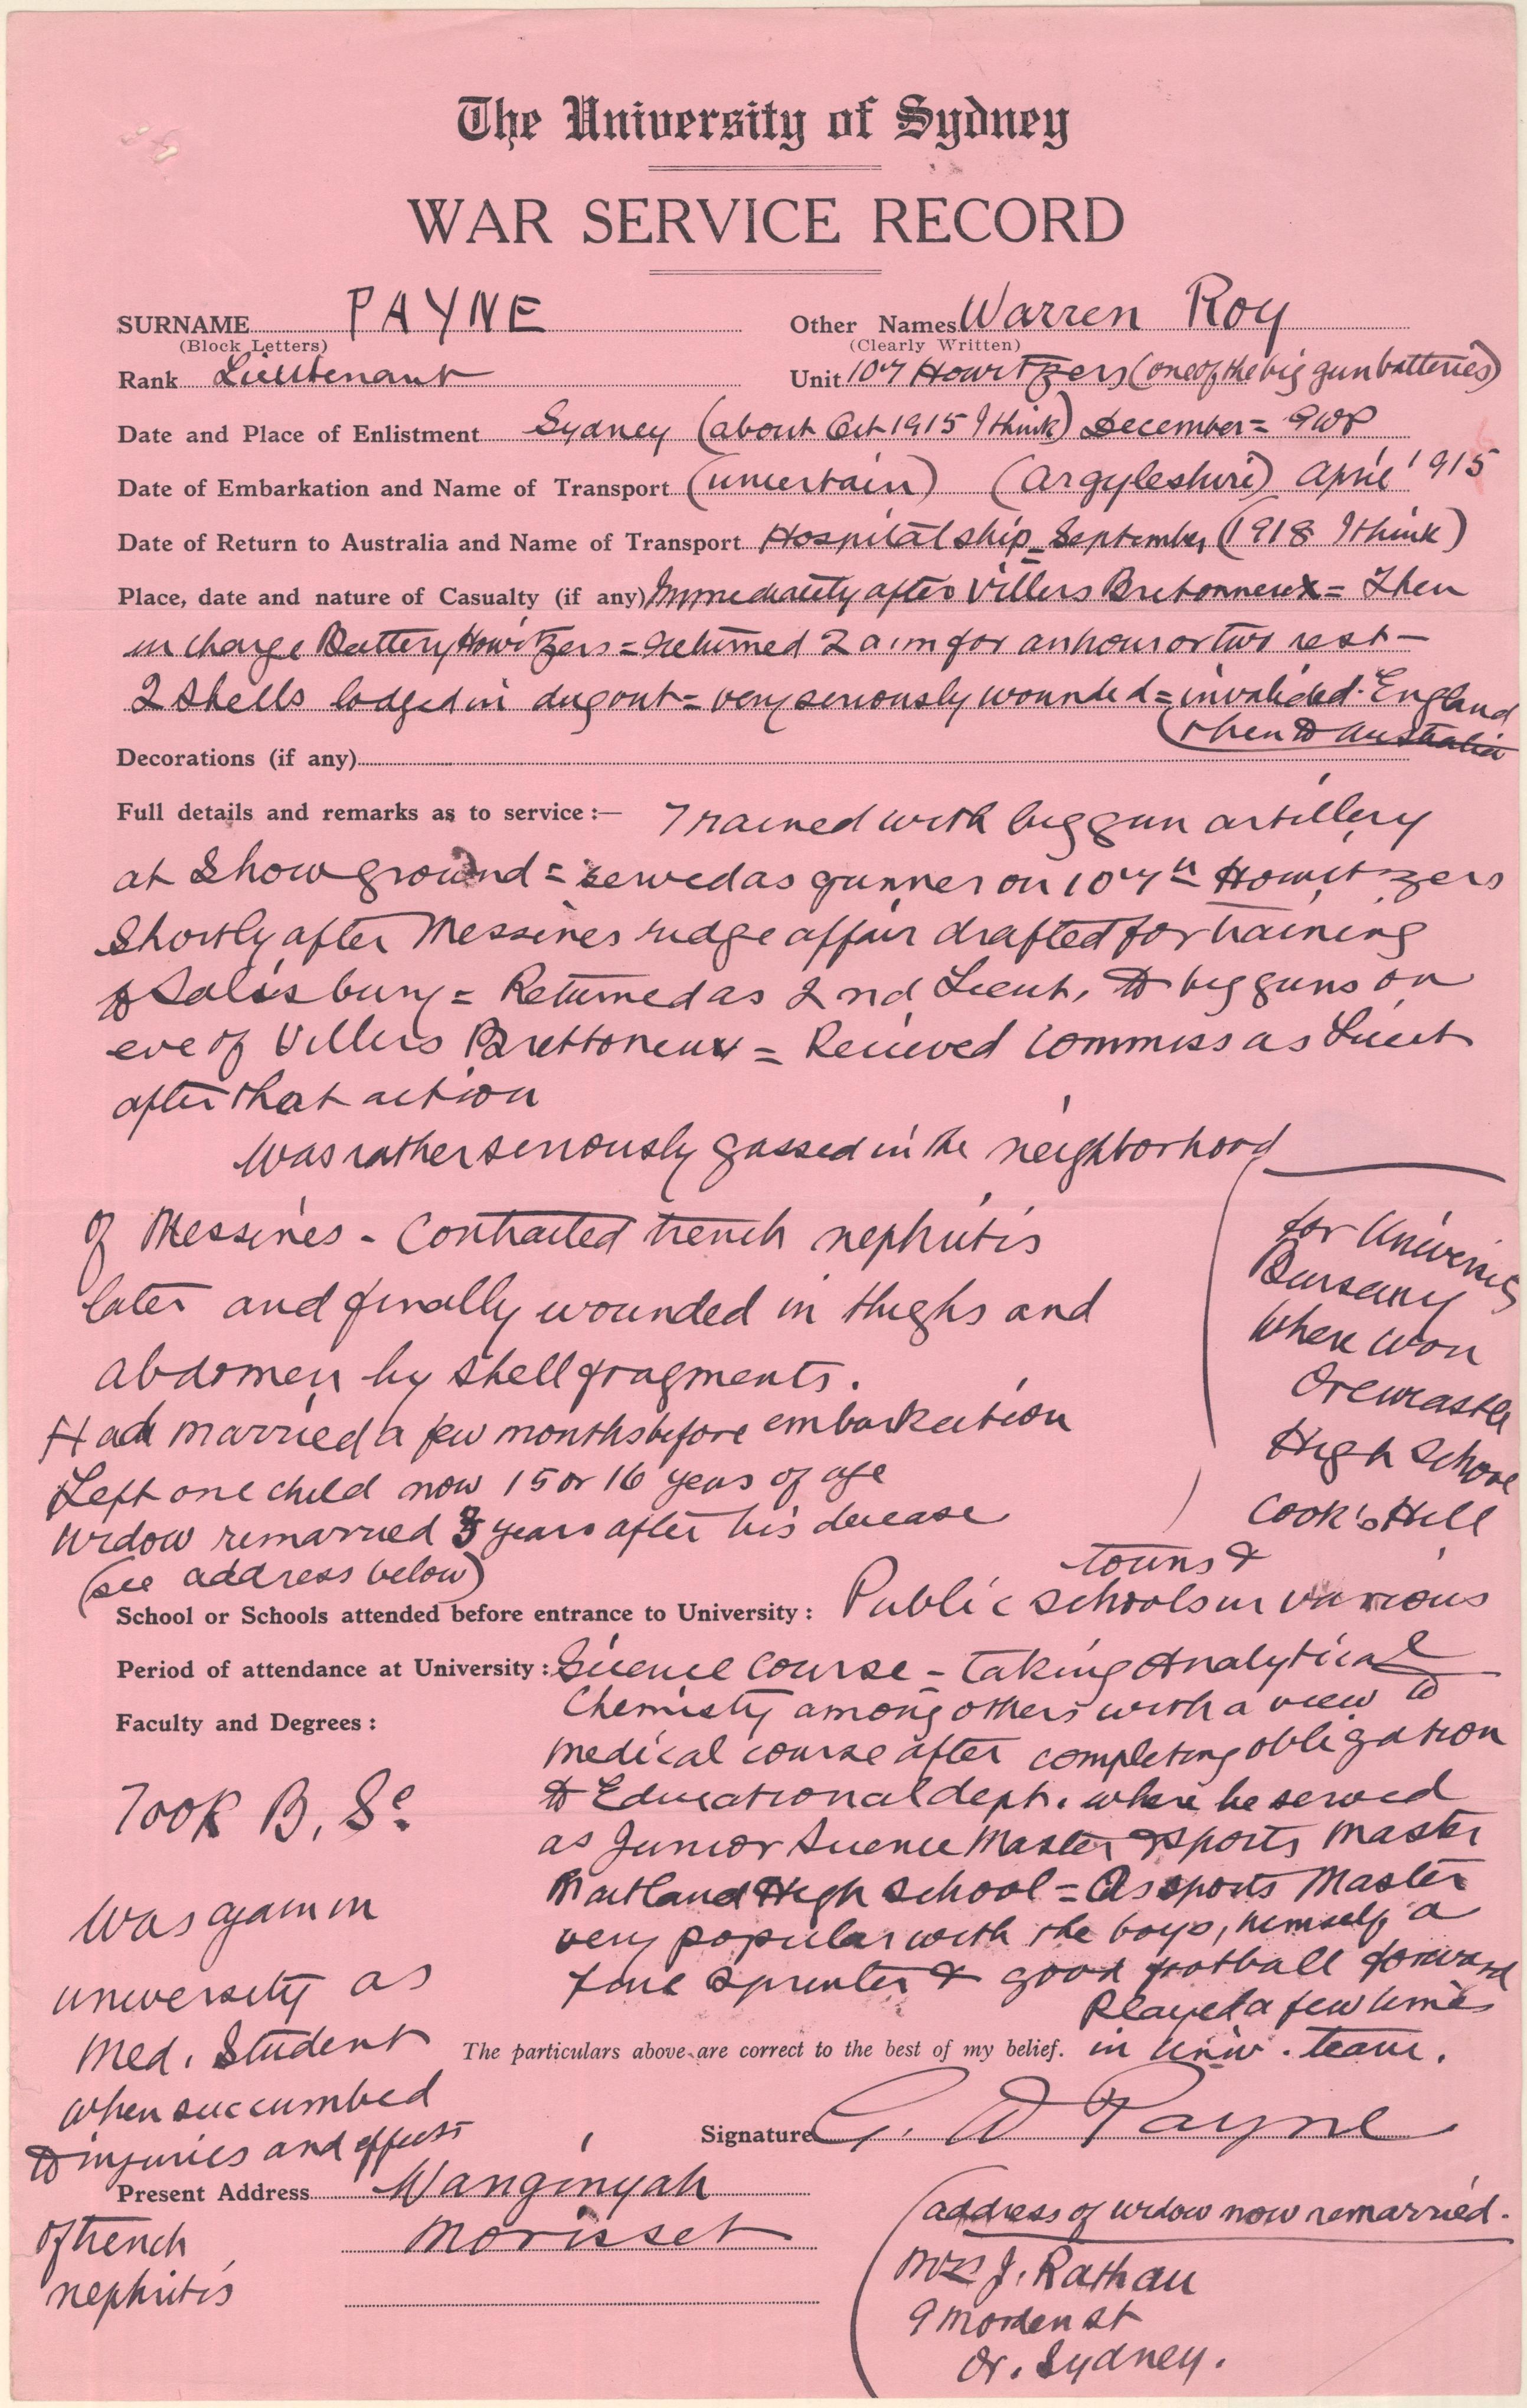 The University of Sydney
WAR SERVICE RECORD
SURNAME PAYNE Other Names Warren Roy
(Block Letters) (Clearly Written)
Rank Lieutenant Unit 107 Howitzers (one of the big gun batteries)
Date and Place of Enlistment Sydney (about Oct 1915 I think) December = GWP
Date of Embarkation and Name of Transport (uncertain) (Argyleshire) April 1915
Date of Return to Australia and Name of Transport Hospital ship = September (1918 I think)
Place, date and nature of Casualty (if any) Immediately after Villers Bretonneux = Then
in charge Battery Howitzers = returned 2 a.m for an hour or two rest —
2 shells lodged in dugout = very seriously wounded = invalided England
(then to Australia
Decorations (if any)
Full details and remarks as to service :— Trained with big gun artillery
at Showground = served as gunner on 107th Howitzers
Shortly after Messines ridge affair drafted for training
to Salisbury = Returned as 2nd Lieut, to big guns on
eve of Villers Brettoneux = Recieved commiss as Lieut
after that action
Was rather seriously gassed in the neighborhood
of Messines - Contracted trench nephritis
later and finally wounded in thighs and
abdomen by shell fragments.
Had married a few months before embarkation
Left one child now 15 or 16 years of age
Widow remarried 3 years after his decease
(see address below)
for University
Bursary
when won
Newcastle
High School
Cook's Hill
towns &
School or Schools attended before entrance to University : Public schools in various
Period of attendance at University : Science Course - taking Analytical
Chemisty among others with a view to
Faculty and Degrees :
medical course after completing obligation
to Educational dept. where he served
as Junior Science Master & Sports Master
Maitland High School = As sports Master
very popular with the boys, himself a
fine sprinter & good football forward
Played a few times
in Univ. team.
Took B. Sc.
Was again in
university as
Med. Student
when succumbed
to injuries and effects
of trench
nephritis
The particulars above are correct to the best of my belief.
Signature G. W Payne
Present Address Wanginyah
Morisset
(address of widow now remarried.
Mrs J. Rathau
9 Morden St
Sydney.